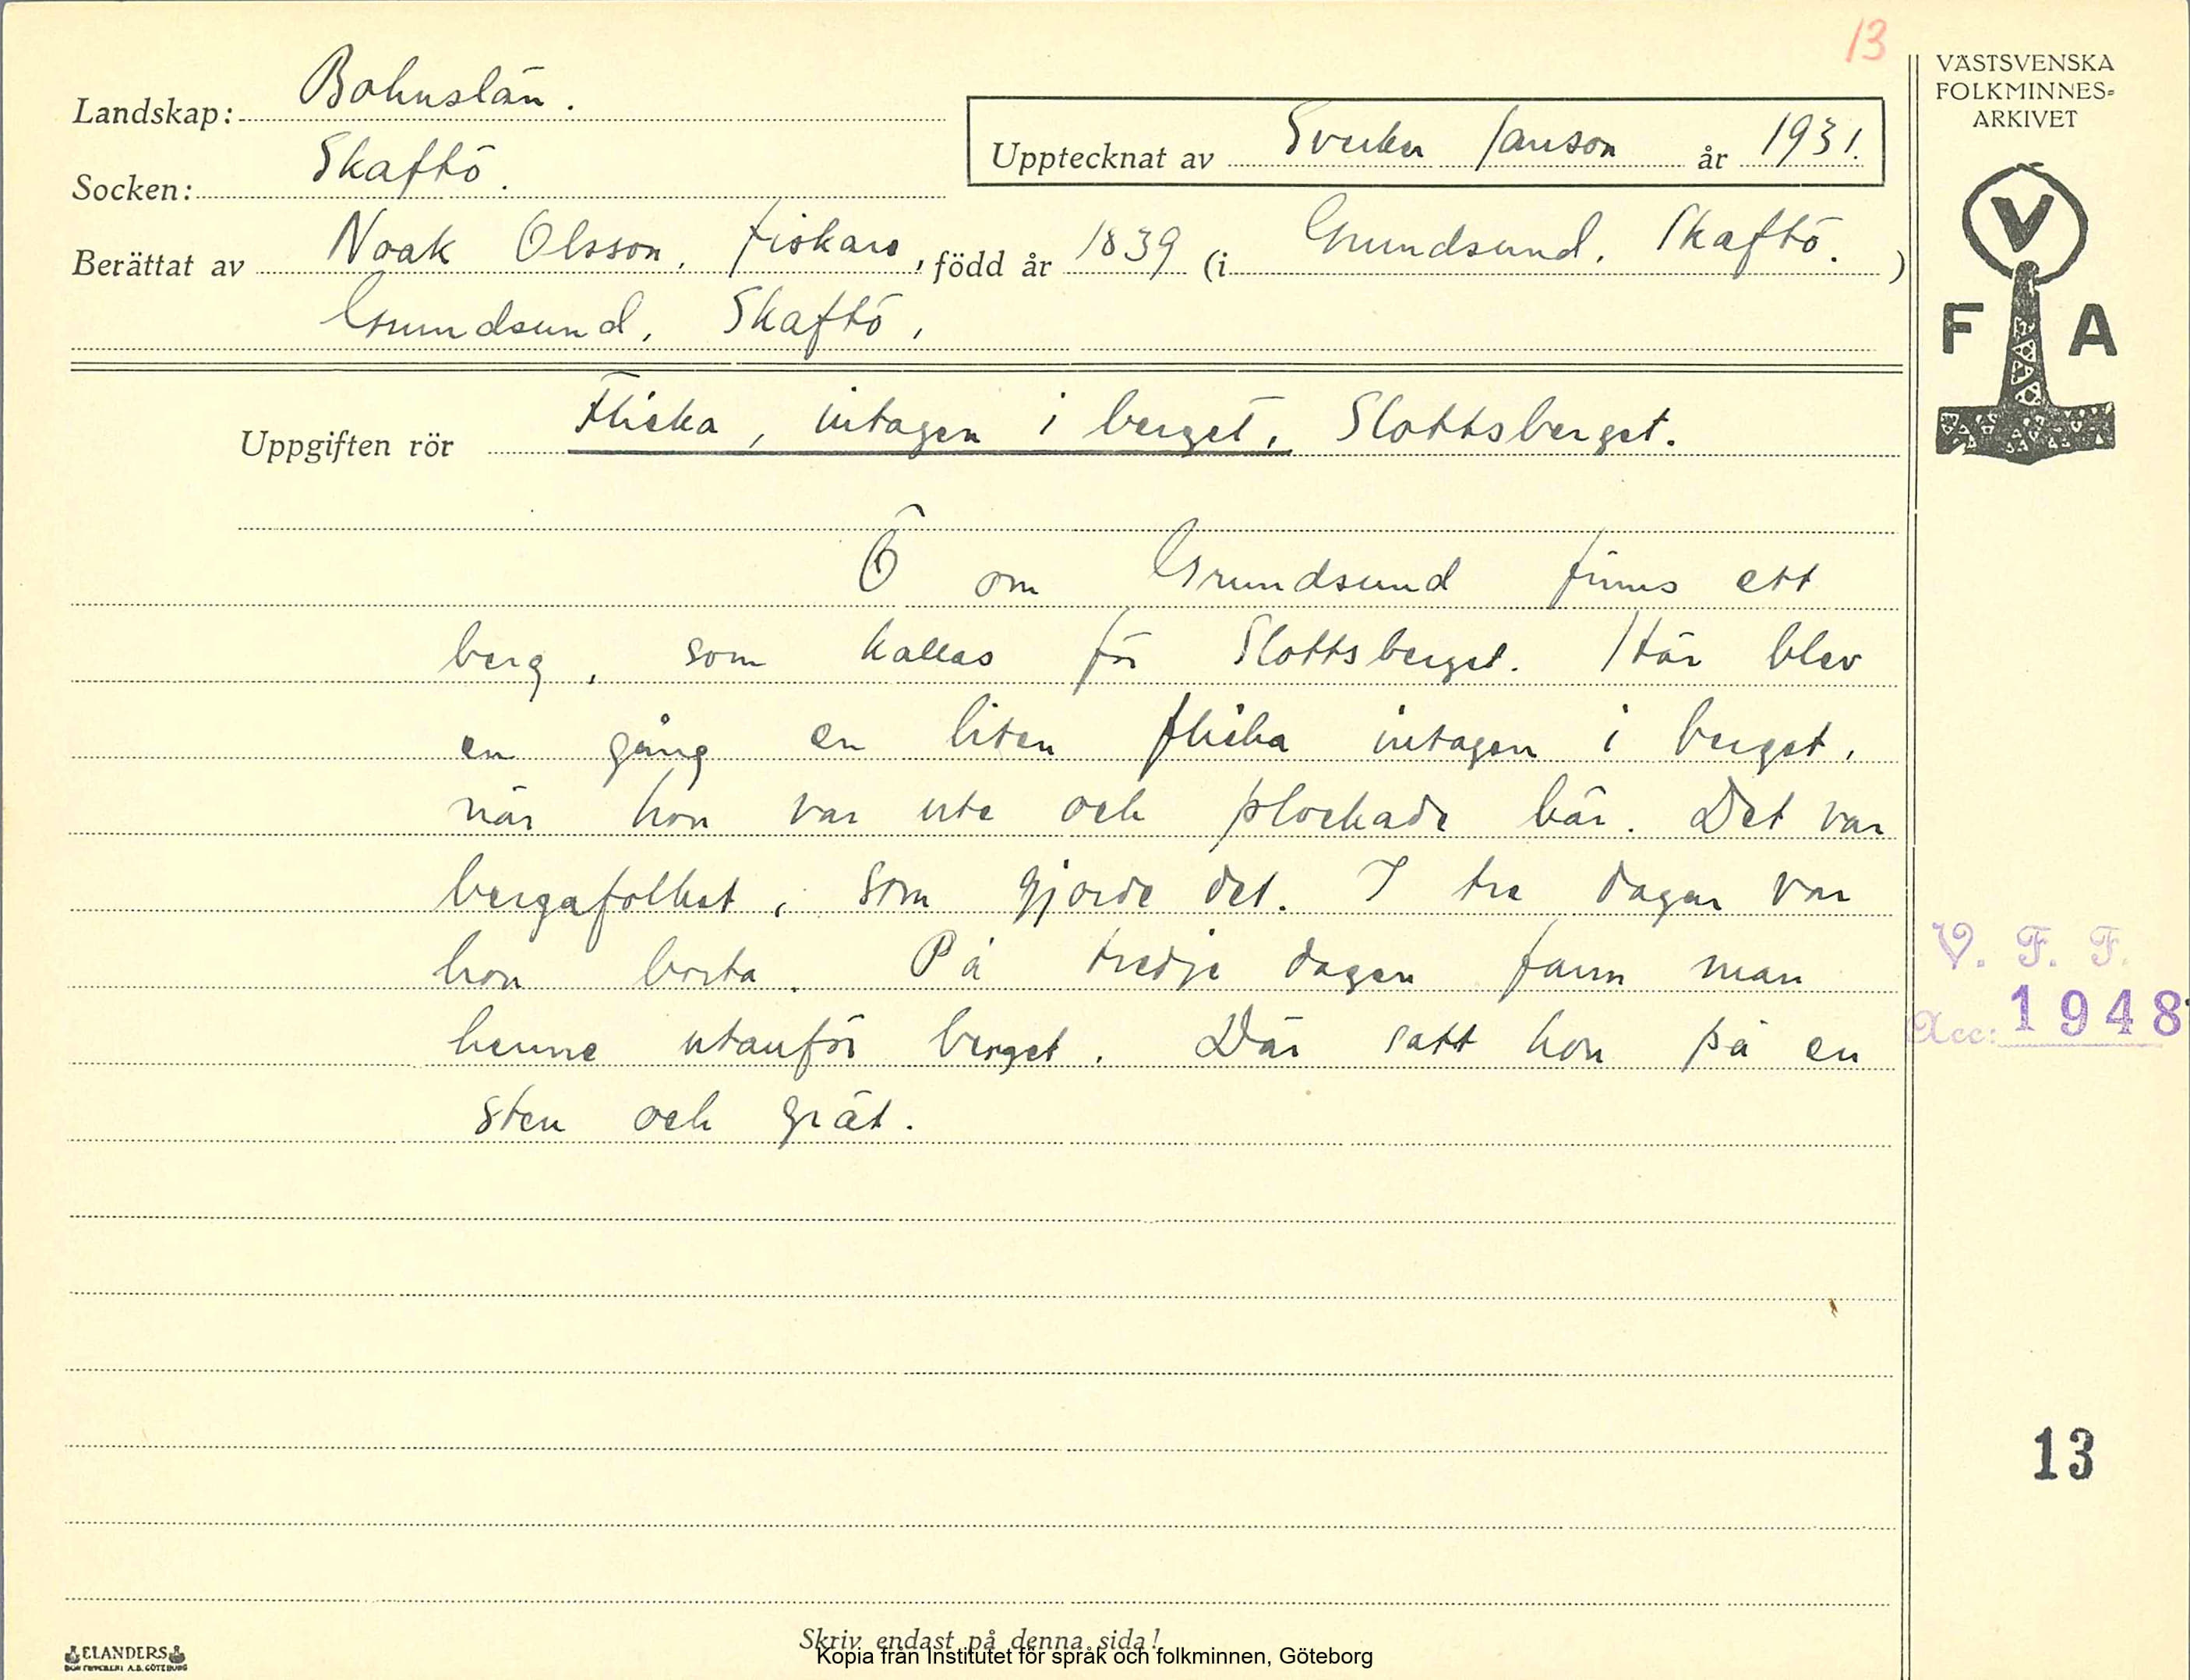 13
VÄSTSVENSKA
FOLKMINNES-
ARKIVET
Landskap: Bohuslän.
Upptecknat av Sverker Janson år 1931.
Socken: Skaftö.
Berättat av Noak Olsson, fiskare, född år 1839 (i Grundsund, Skaftö.)
Grundsund, Skaftö,
V
F A
Uppgiften rör Flicka, intagen i berget, Slottsberget.
Ö om Grundsund finns ett
berg, som kallas för Slottsberget. Här blev
en gång en liten flicka intagen i berget,
när hon var ute och plockade bär. Det var
bergafolket, som gjorde det. I tre dagar var
hon borta. På tredje dagen fann man
henne utanför berget. Där satt hon på en
sten och grät.
V. F. F.
Acc: 1948
13
Skriv endast på denna sida!
Kopia från Institutet för språk och folkminnen, Göteborg
ELANDERS
BOKTRYCKERI A.B. GÖTEBORG